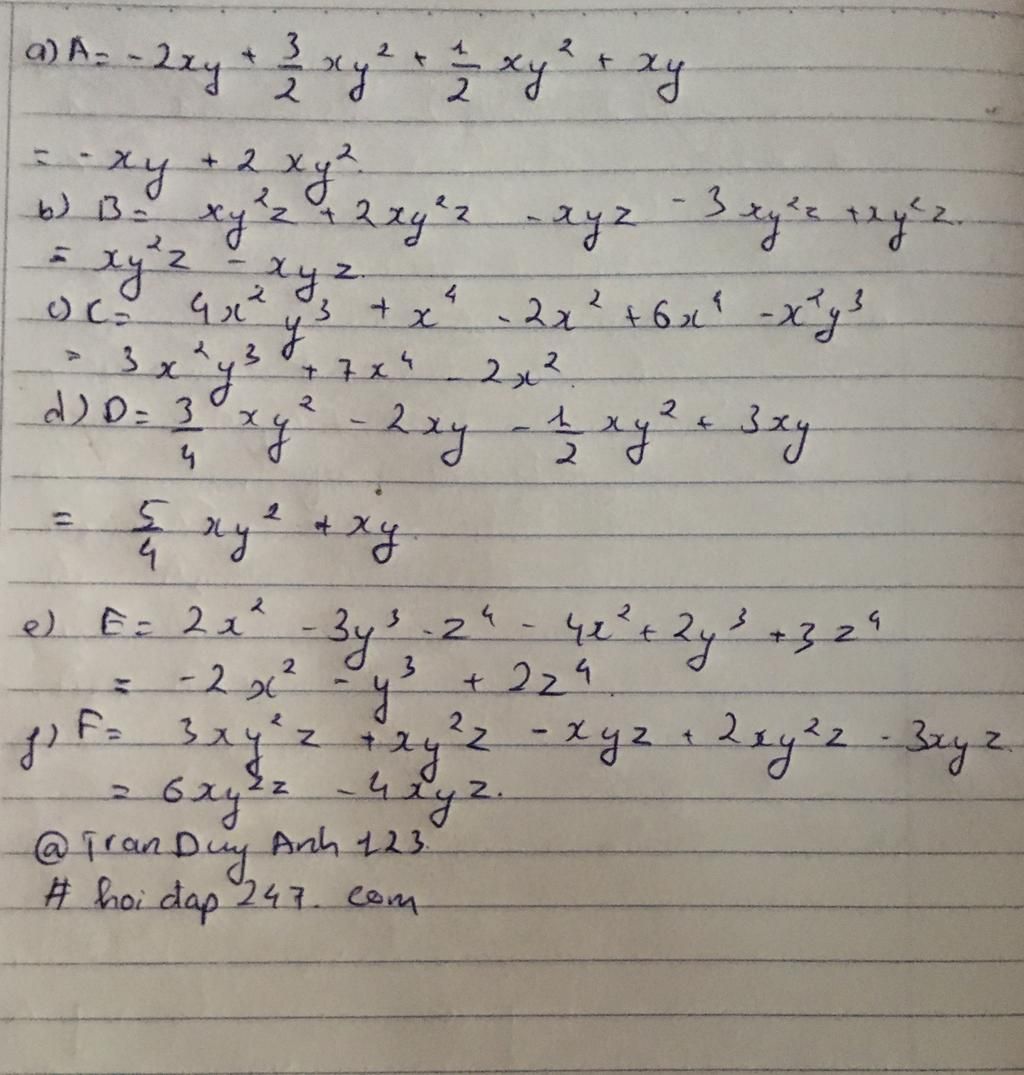 a) A = -2xy + 3/2 xy² + 1/2 xy² + xy
= -xy + 2xy².
b) B = xy²z + 2xy²z - xyz - 3xy²z + xy²z.
= xy²z - xyz.
c) C = 4x²y³ + x⁴ - 2x² + 6x⁴ - x²y³
= 3x²y³ + 7x⁴ - 2x².
d) D = 3/4 xy² - 2xy - 1/2 xy² + 3xy
= 5/4 xy² + xy.
e) E = 2x² - 3y³ - z⁴ - 4x² + 2y³ + 3z⁴
= -2x² - y³ + 2z⁴.
f) F = 3xy²z + xy²z - xyz + 2xy²z - 3xyz.
= 6xy²z - 4xyz.
@ Tran Duy Anh 123.
# hoi dap 247. com